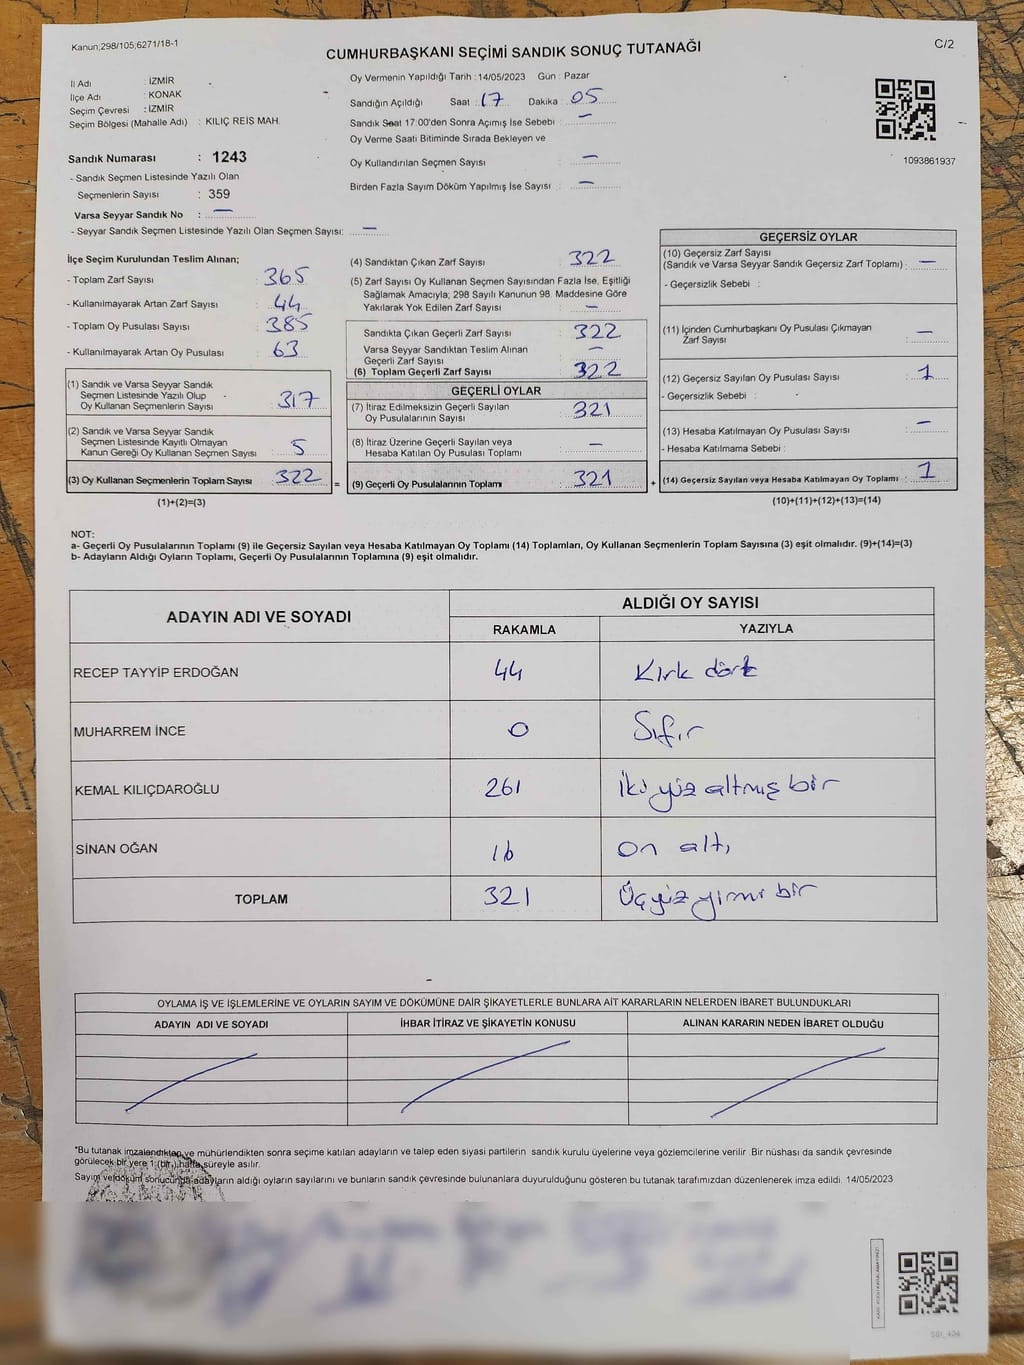 Kanun;298/105;6271/18-1
C/2
CUMHURBAŞKANI SEÇİMİ SANDIK SONUÇ TUTANAĞI
İl Adı : İZMİR
İlçe Adı : KONAK
Seçim Çevresi : İZMİR
Seçim Bölgesi (Mahalle Adı) : KILIÇ REİS MAH.
Sandık Numarası : 1243
- Sandık Seçmen Listesinde Yazılı Olan
Seçmenlerin Sayısı : 359
Varsa Seyyar Sandık No : —
- Seyyar Sandık Seçmen Listesinde Yazılı Olan Seçmen Sayısı: —
Oy Vermenin Yapıldığı Tarih : 14/05/2023 Gün : Pazar
Sandığın Açıldığı Saat : 17 Dakika : 05
Sandık Saat 17:00'den Sonra Açımış İse Sebebi : —
Oy Verme Saati Bitiminde Sırada Bekleyen ve
Oy Kullandırılan Seçmen Sayısı : —
Birden Fazla Sayım Döküm Yapılmış İse Sayısı : —
1093861937
İlçe Seçim Kurulundan Teslim Alınan;
- Toplam Zarf Sayısı : 365
- Kullanılmayarak Artan Zarf Sayısı : 44
- Toplam Oy Pusulası Sayısı : 385
- Kullanılmayarak Artan Oy Pusulası : 63
(1) Sandık ve Varsa Seyyar Sandık
Seçmen Listesinde Yazılı Olup
Oy Kullanan Seçmenlerin Sayısı : 317
(2) Sandık ve Varsa Seyyar Sandık
Seçmen Listesinde Kayıtlı Olmayan
Kanun Gereği Oy Kullanan Seçmen Sayısı : 5
(3) Oy Kullanan Seçmenlerin Toplam Sayısı : 322 =
(1)+(2)=(3)
(4) Sandıktan Çıkan Zarf Sayısı : 322
(5) Zarf Sayısı Oy Kullanan Seçmen Sayısından Fazla İse, Eşitliği
Sağlamak Amacıyla; 298 Sayılı Kanunun 98. Maddesine Göre
Yakılarak Yok Edilen Zarf Sayısı : —
Sandıkta Çıkan Geçerli Zarf Sayısı : 322
Varsa Seyyar Sandıktan Teslim Alınan
Geçerli Zarf Sayısı : —
(6) Toplam Geçerli Zarf Sayısı : 322
GEÇERLİ OYLAR
(7) İtiraz Edilmeksizin Geçerli Sayılan
Oy Pusulalarının Sayısı : 321
(8) İtiraz Üzerine Geçerli Sayılan veya
Hesaba Katılan Oy Pusulası Toplamı : —
(9) Geçerli Oy Pusulalarının Toplamı : 321 +
GEÇERSİZ OYLAR
(10) Geçersiz Zarf Sayısı
(Sandık ve Varsa Seyyar Sandık Geçersiz Zarf Toplamı) : —
- Geçersizlik Sebebi :
(11) İçinden Cumhurbaşkanı Oy Pusulası Çıkmayan
Zarf Sayısı : —
(12) Geçersiz Sayılan Oy Pusulası Sayısı : 1
- Geçersizlik Sebebi :
(13) Hesaba Katılmayan Oy Pusulası Sayısı : —
- Hesaba Katılmama Sebebi :
(14) Geçersiz Sayılan veya Hesaba Katılmayan Oy Toplamı : 1
(10)+(11)+(12)+(13)=(14)
NOT:
a- Geçerli Oy Pusulalarının Toplamı (9) ile Geçersiz Sayılan veya Hesaba Katılmayan Oy Toplamı (14) Toplamları, Oy Kullanan Seçmenlerin Toplam Sayısına (3) eşit olmalıdır. (9)+(14)=(3)
b- Adayların Aldığı Oyların Toplamı, Geçerli Oy Pusulalarının Toplamına (9) eşit olmalıdır.
ADAYIN ADI VE SOYADI
ALDIĞI OY SAYISI
RAKAMLA YAZIYLA
RECEP TAYYİP ERDOĞAN 44 Kırk dört
MUHARREM İNCE 0 Sıfır
KEMAL KILIÇDAROĞLU 261 İki yüz altmış bir
SİNAN OĞAN 16 on altı
TOPLAM 321 Üçyüz yirmi bir
OYLAMA İŞ VE İŞLEMLERİNE VE OYLARIN SAYIM VE DÖKÜMÜNE DAİR ŞİKAYETLERLE BUNLARA AİT KARARLARIN NELERDEN İBARET BULUNDUKLARI
ADAYIN ADI VE SOYADI İHBAR İTİRAZ VE ŞİKAYETİN KONUSU ALINAN KARARIN NEDEN İBARET OLDUĞU
*Bu tutanak imzalandıktan ve mühürlendikten sonra seçime katılan adayların ve talep eden siyasi partilerin sandık kurulu üyelerine veya gözlemcilerine verilir. Bir nüshası da sandık çevresinde
görülecek bir yere 1 (bir) hafta süreyle asılır.
Sayım ve döküm sonucunda adayların aldığı oyların sayılarını ve bunların sandık çevresinde bulunanlara duyurulduğunu gösteren bu tutanak tarafımızdan düzenlenerek imza edildi. 14/05/2023